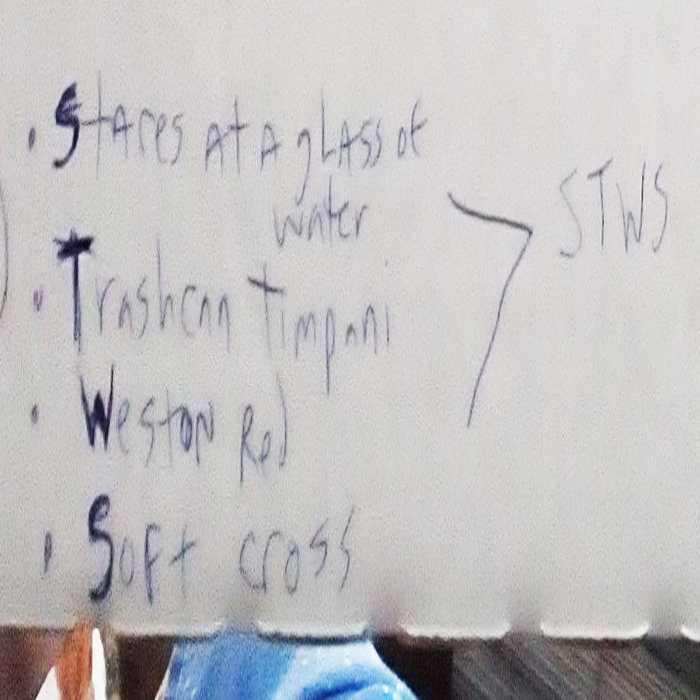 • Stares at a glass of
water
• Trashcan Timpani
• Weston Red
• Soft cross
STWS